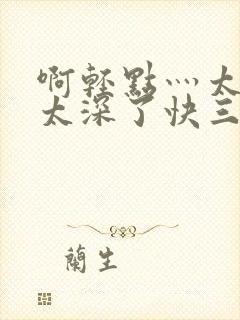 啊轻點灬太
太深了快三
蘭生